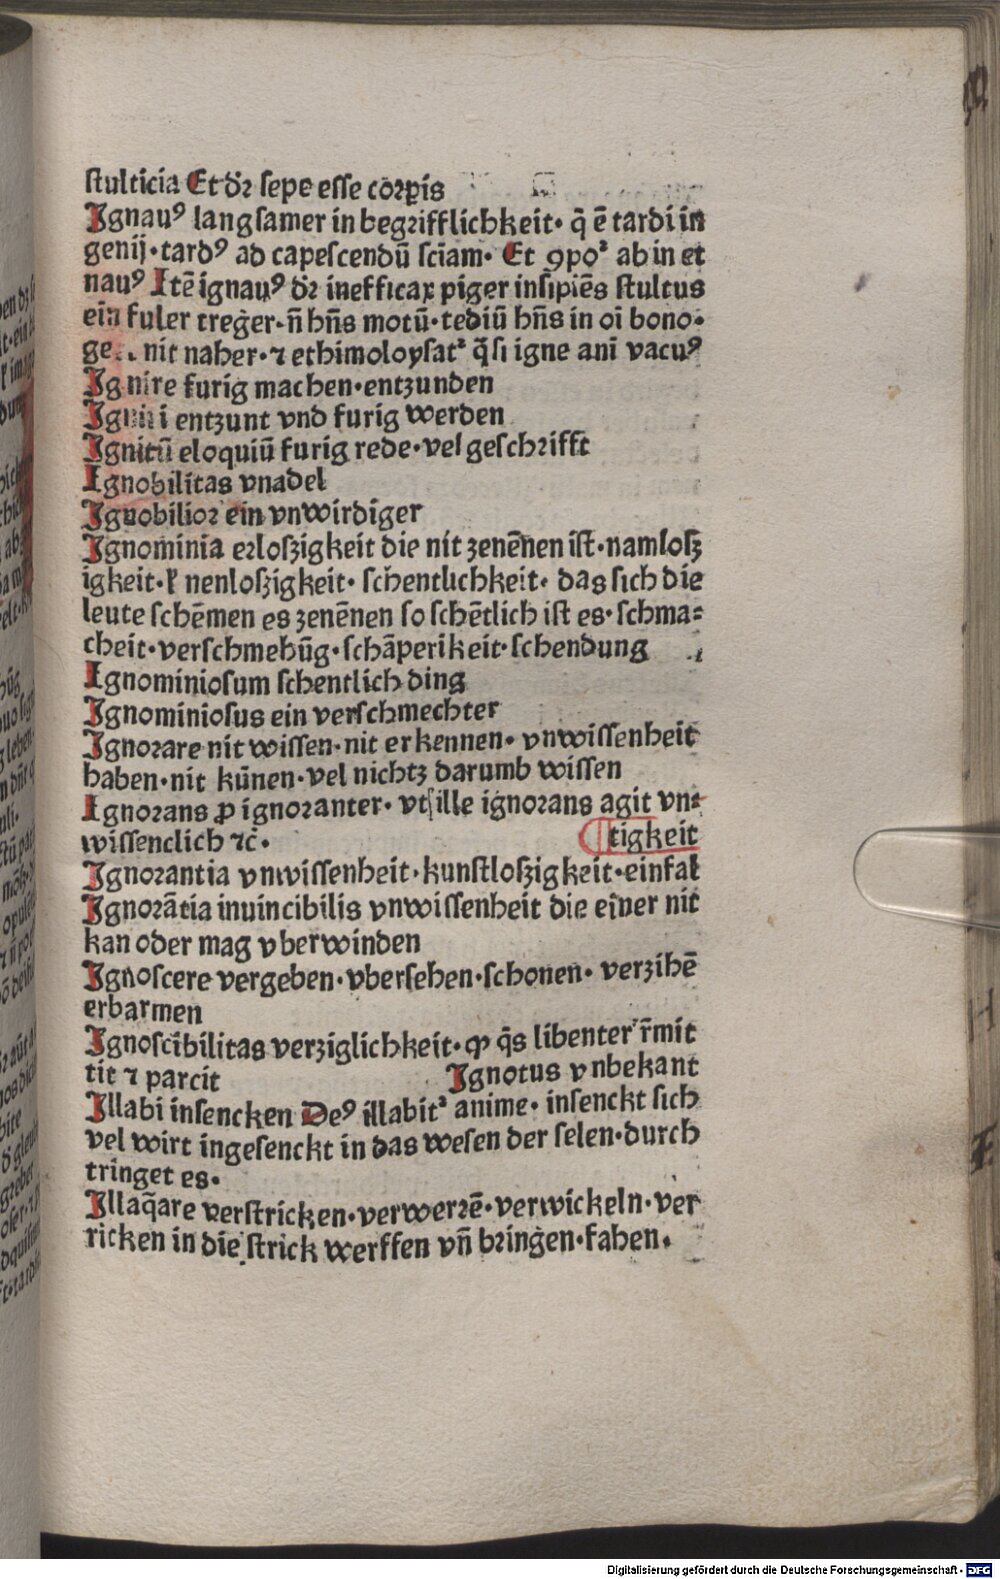 ſtulticia Et dr̄ ſepe eſſe corꝑis
Ignauꝰ langſamer in begrifflichkeit· q̄ ē tardi in
genij·tardꝰ ad capeſcendū ſciam̄· Et ꝯpoꝰ ab in et
nauꝰ Itē ignauꝰ dr̄ inefficax piger inſipiēs ſtultus
ein fuler treger·n̄ hn̄s motū·tediū hn̄s in oī bono·
nit naher·⁊ ethimoloyſatᷣ q̄ſi igne anī vacuꝰ
Ignire furig machen·entzunden
Igniri entzunt vnd furig werden
Ignitū eloquiū furig rede·vel geſchrifft
Ignobilitas vnadel
Ignobilior ein vnwirdiger
Ignominia erloſzigkeit die nit zenēnen iſt·namloſz
igkeit·ł nenloſzigkeit· ſchentlichkeit· das ſich die
leute ſchēmen es zenēnen ſo ſchētlich iſt es·ſchma⸗
cheit·verſchmehūg·ſchāperikeit·ſchendung
Ignominioſum ſchentlich ding
Ignominioſus ein verſchmechter
Ignorare nit wiſſen·nit erkennen· vnwiſſenheit
haben·nit kūnen·vel nichtz darumb wiſſen
Ignorans ꝓ ignoranter· vt ille ignorans agit vn⸗
wiſſenclich ⁊c̄· tigkeit
Ignorantia vnwiſſenheit·kunſtloſzigkeit·einfal
Ignorātia inuincibilis vnwiſſenheit die einer nit
kan oder mag vberwinden
Ignoſcere vergeben·vberſehen·ſchonen· verzihē
erbarmen
Ignoſcibilitas verziglichkeit·ꝙ q̄s libenter r̄mit
tit ⁊ parcit Ignotus vnbekant
Illabi inſencken Deꝰ illabitᷣ anime· inſenckt ſich
vel wirt ingeſenckt in das weſen der ſelen·durch
tringet es·
Illaq̄are verſtricken·verwerrē·verwickeln·ver
ricken in die ſtrick werffen vn̄ bringen·fahen·
Digitalisierung gefördert durch die Deutsche Forschungsgemeinschaft - DFG